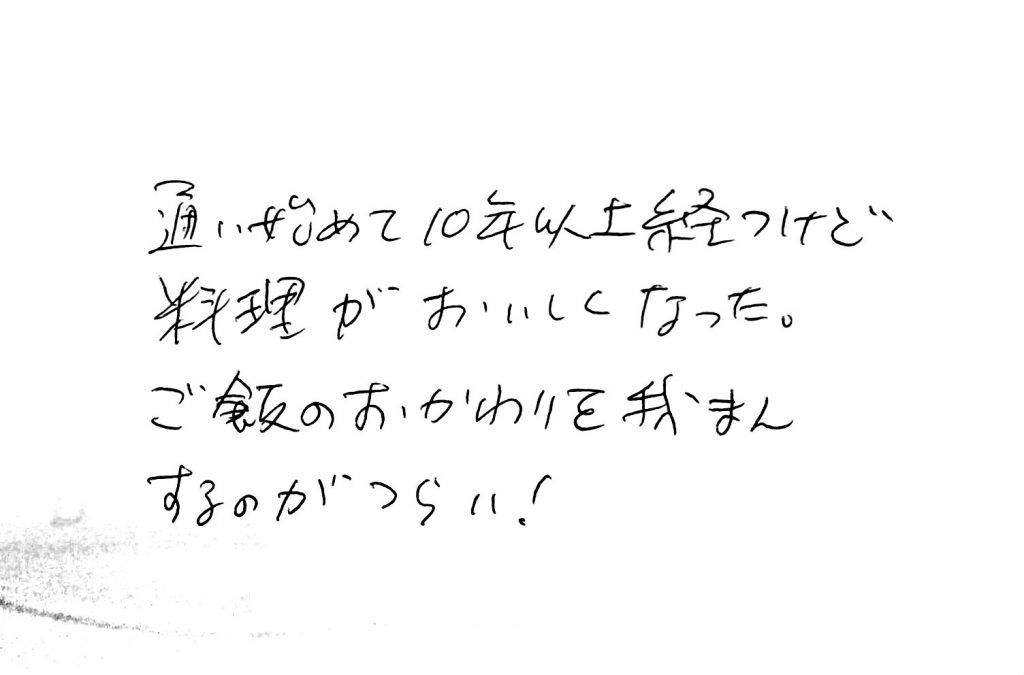 通い始めて10年以上経つけど
料理がおいしくなった。
ご飯のおかわりを我まん
するのがつらい!